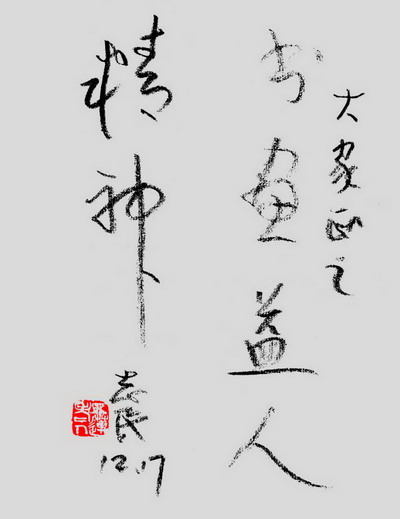 大家正之
书画益人
精神
志民
12.17